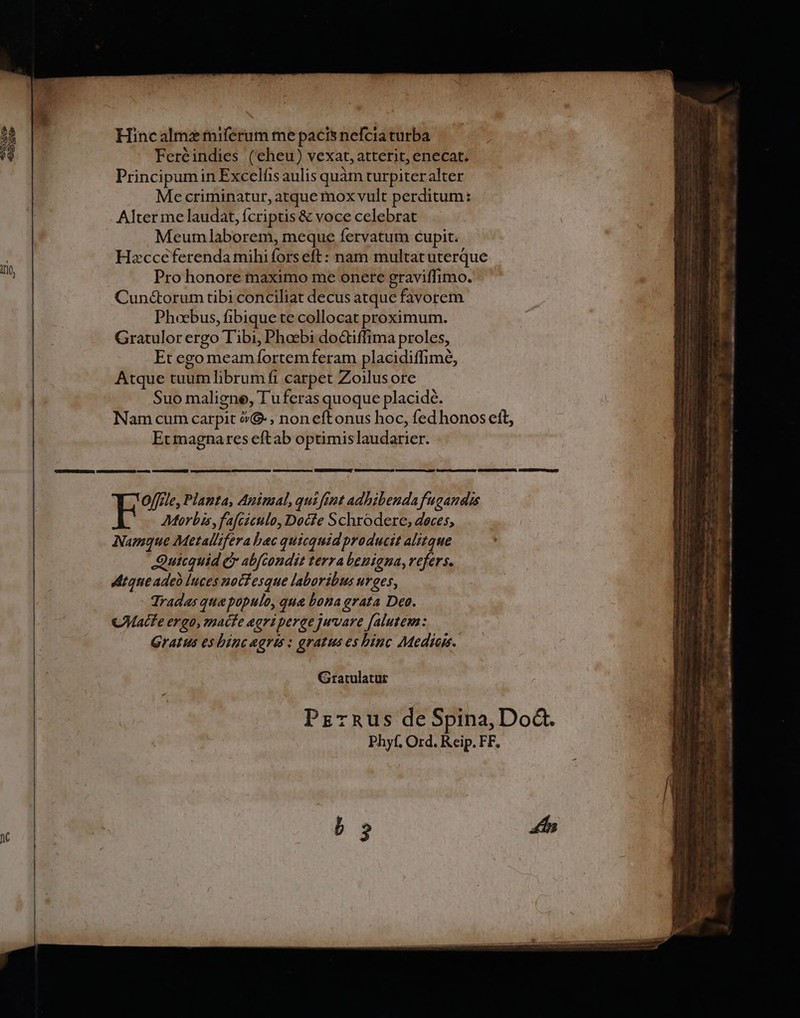 Hinc almæ miſerum me pacis neſcia turba
Ferè indies (eheu) vexat, atterit, enecat.
Principum in Excelſis aulis quàm turpiter alter
Me criminatur, atque mox vult perditum:
Alter me laudat, ſcriptis & voce celebrat
Meum laborem, meque ſervatum cupit.
Hæcce ferenda mihi fors eſt: nam multat uterque
Pro honore maximo me onere graviſſimo.
Cunctorum tibi conciliat decus atque favorem
Phœbus, ſibique te collocat proximum.
Gratulor ergo Tibi, Phœbi doctiſſima proles,
Et ego meam ſortem feram placidiſſimè,
Atque tuum librum ſi carpet Zoilus ore
Suo maligno, Tu feras quoque placidè.
Nam cum carpit, non eſt onus hoc, ſed honos eſt,
Et magna res eſt ab optimis laudarier.
Foſſile, Planta, Animal, qui ſint adhibenda fugandis
Morbis, faſciculo, Docte Schrodere, doces,
Namque Metallifera hæc quicquid producit alitque
Quicquid & abſcondit terra benigna, refers.
Atque adeò luces noctesque laboribus urges,
Tradas quæ populo, quæ bona grata Deo.
Macte ergo, macte ægri perge juvare ſalutem:
Gratus es hinc ægris: gratus es hinc Medicis.
Gratulatur
PETRUS de Spina, Doct.
Phyſ. Ord. Reip. FF.
b 3 An